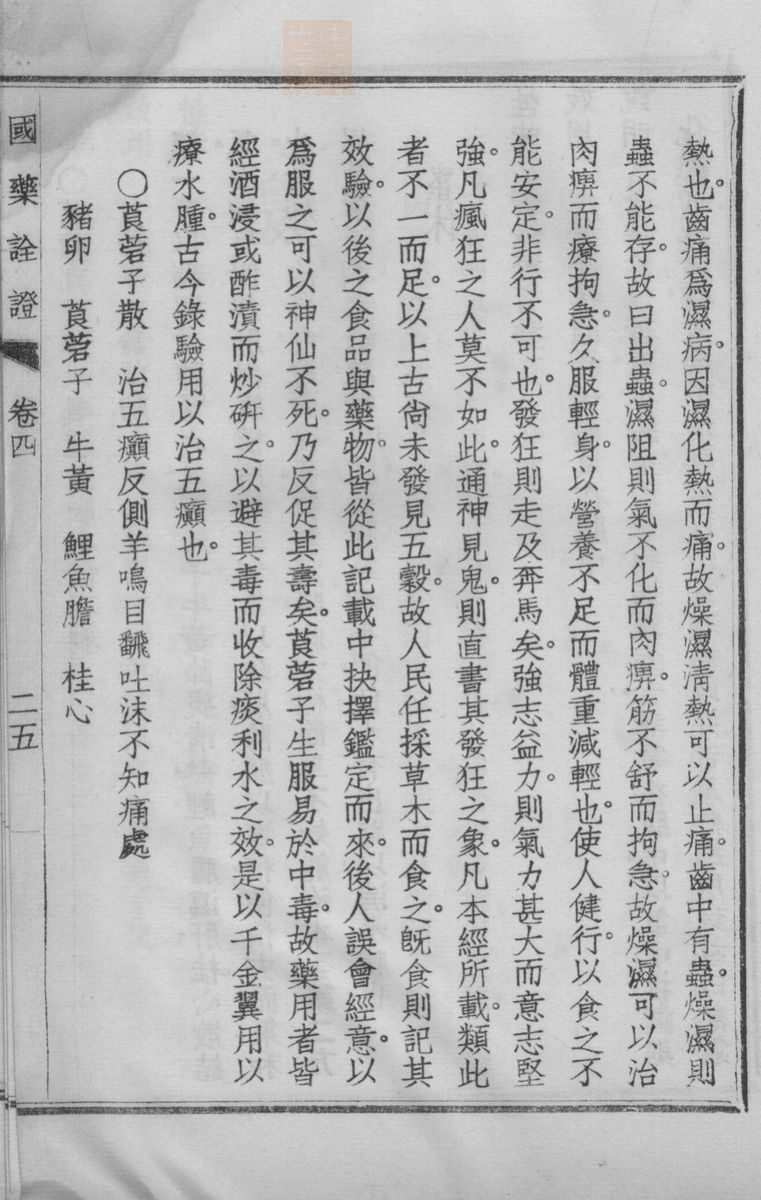 熱也。齒痛爲濕病。因濕化熱而痛。故燥濕清熱可以止痛。齒中有蟲。燥濕則
蟲不能存。故曰出蟲。濕阻則氣不化而肉痹。筋不舒而拘急。故燥濕可以治
肉痹而療拘急。久服輕身。以營養不足而體重減輕也。使人健行。以食之不
能安定。非行不可也。發狂則走及奔馬矣。強志益力。則氣力甚大而意志堅
強。凡瘋狂之人莫不如此。通神見鬼。則直書其發狂之象。凡本經所載。類此
者不一而足。以上古尙未發見五穀。故人民任採草木而食之。旣食則記其
效驗。以後之食品與藥物。皆從此記載中抉擇鑑定而來。後人誤會經意。以
爲服之可以神仙不死。乃反促其壽矣。莨菪子生服易於中毒。故藥用者皆
經酒浸或酢漬而炒硏之。以避其毒而收除痰利水之效。是以千金翼用以
療水腫。古今錄驗用以治五癲也。
〇莨菪子散 治五癲反側羊鳴目翻吐沫不知痛處
豬卵 莨菪子 牛黃 鯉魚膽 桂心
國藥詮證 卷四 二五